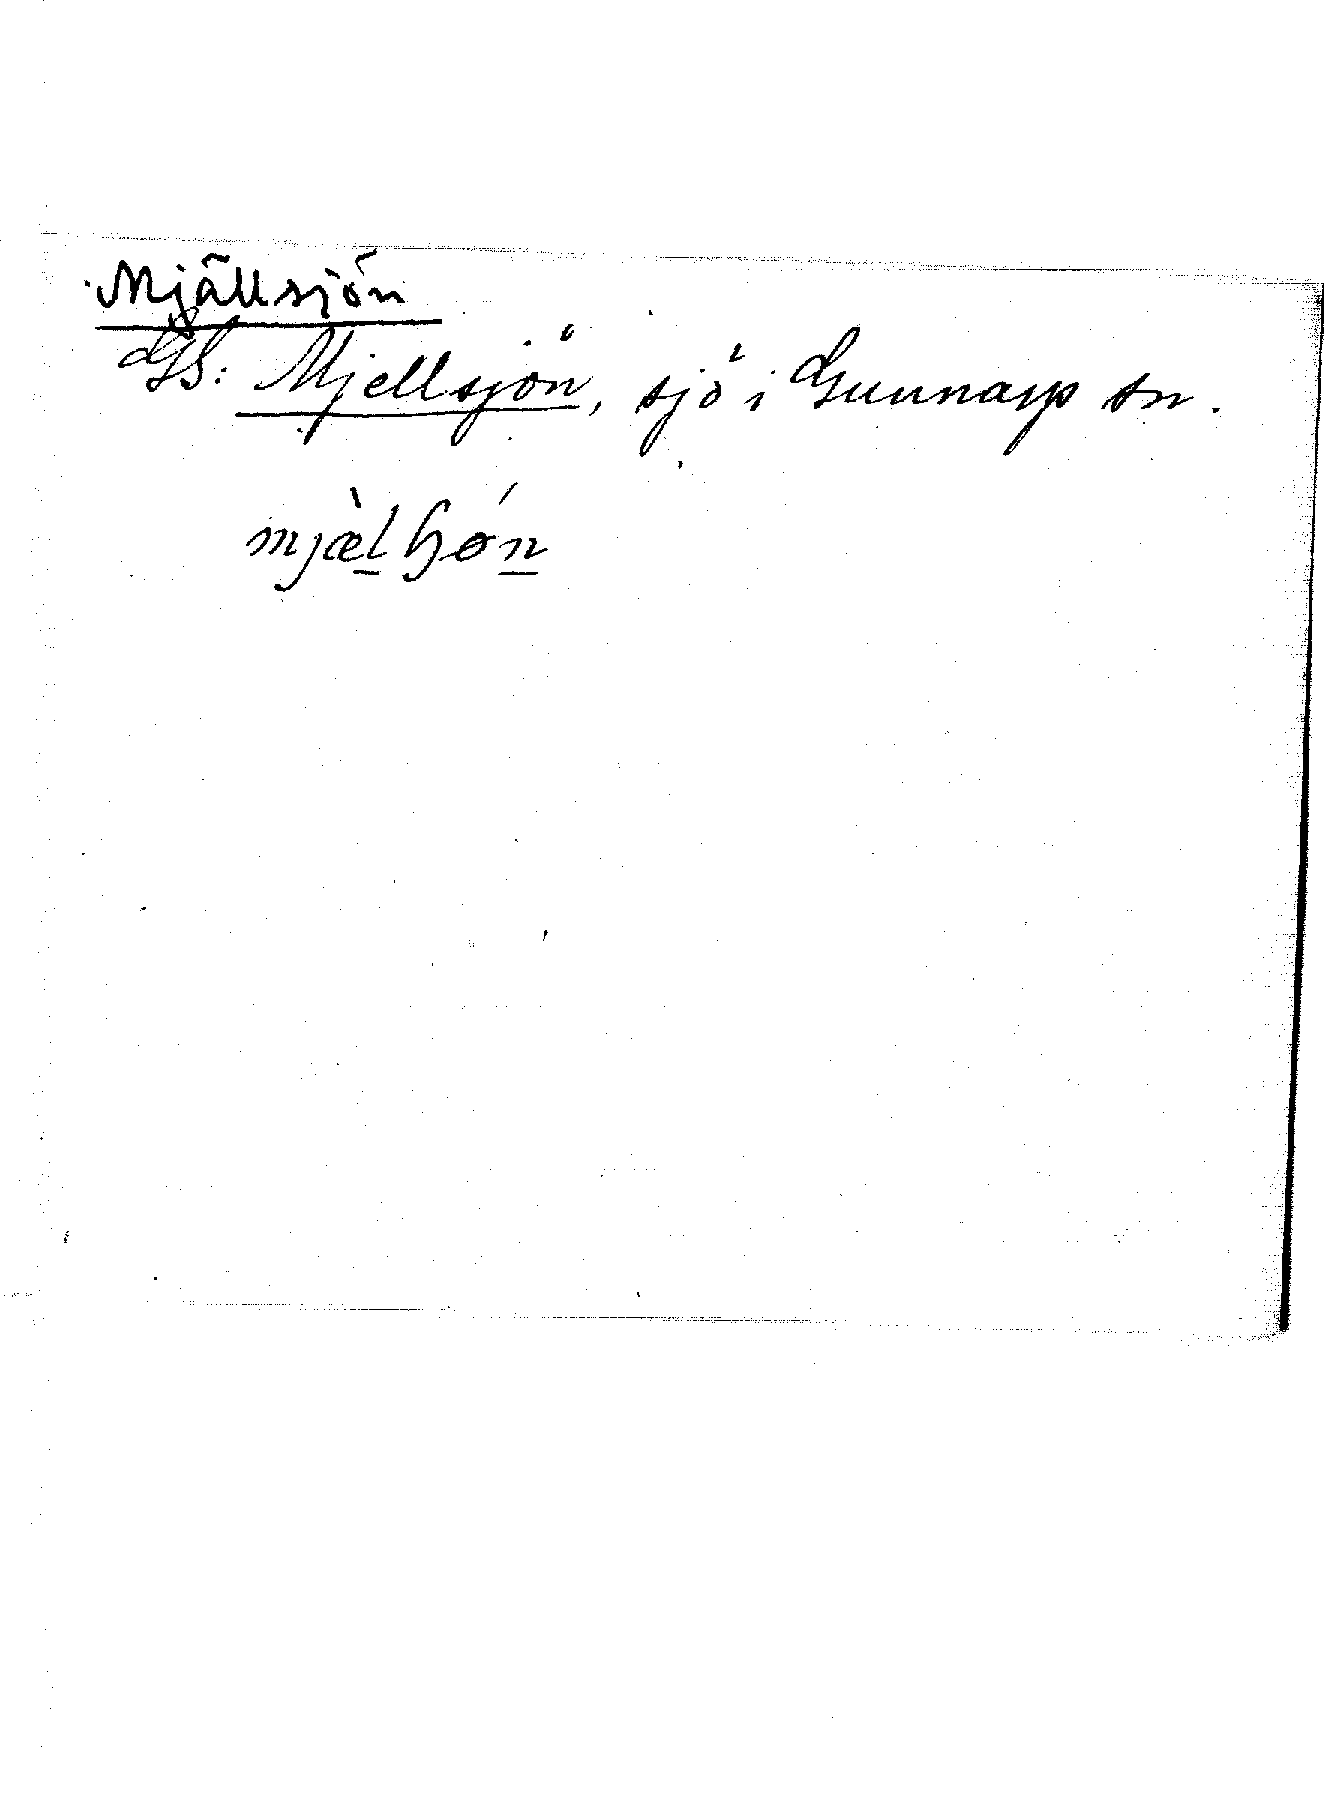 Mjällsjön
GS: Mjellsjön, sjö i Gunnarp sn.
mjæ̀l̲ɧøńn̲